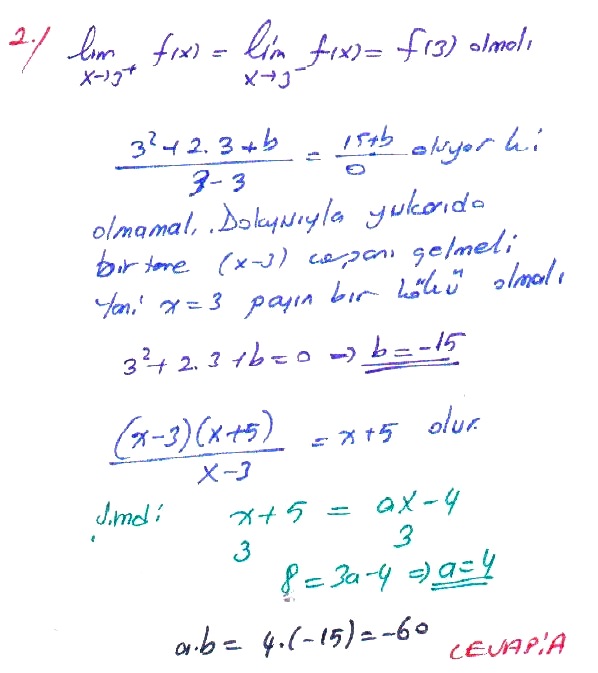 2-/ lim f(x) = lim f(x) = f(3) olmalı
x→3⁺ x→3⁻
3² + 2.3 + b / 3-3 = 15+b / 0 oluyor ki
olmamalı. Dolayısıyla yukarıda
bir tane (x-3) çarpanı gelmeli
Yani x = 3 payın bir kökü olmalı
3² + 2.3 + b = 0 ⇒ b = -15
(x-3)(x+5) / x-3 = x+5 olur.
Şimdi x+5 = ax-4
3 3
8 = 3a-4 ⇒ a=4
a.b = 4.(-15) = -60
CEVAP:A